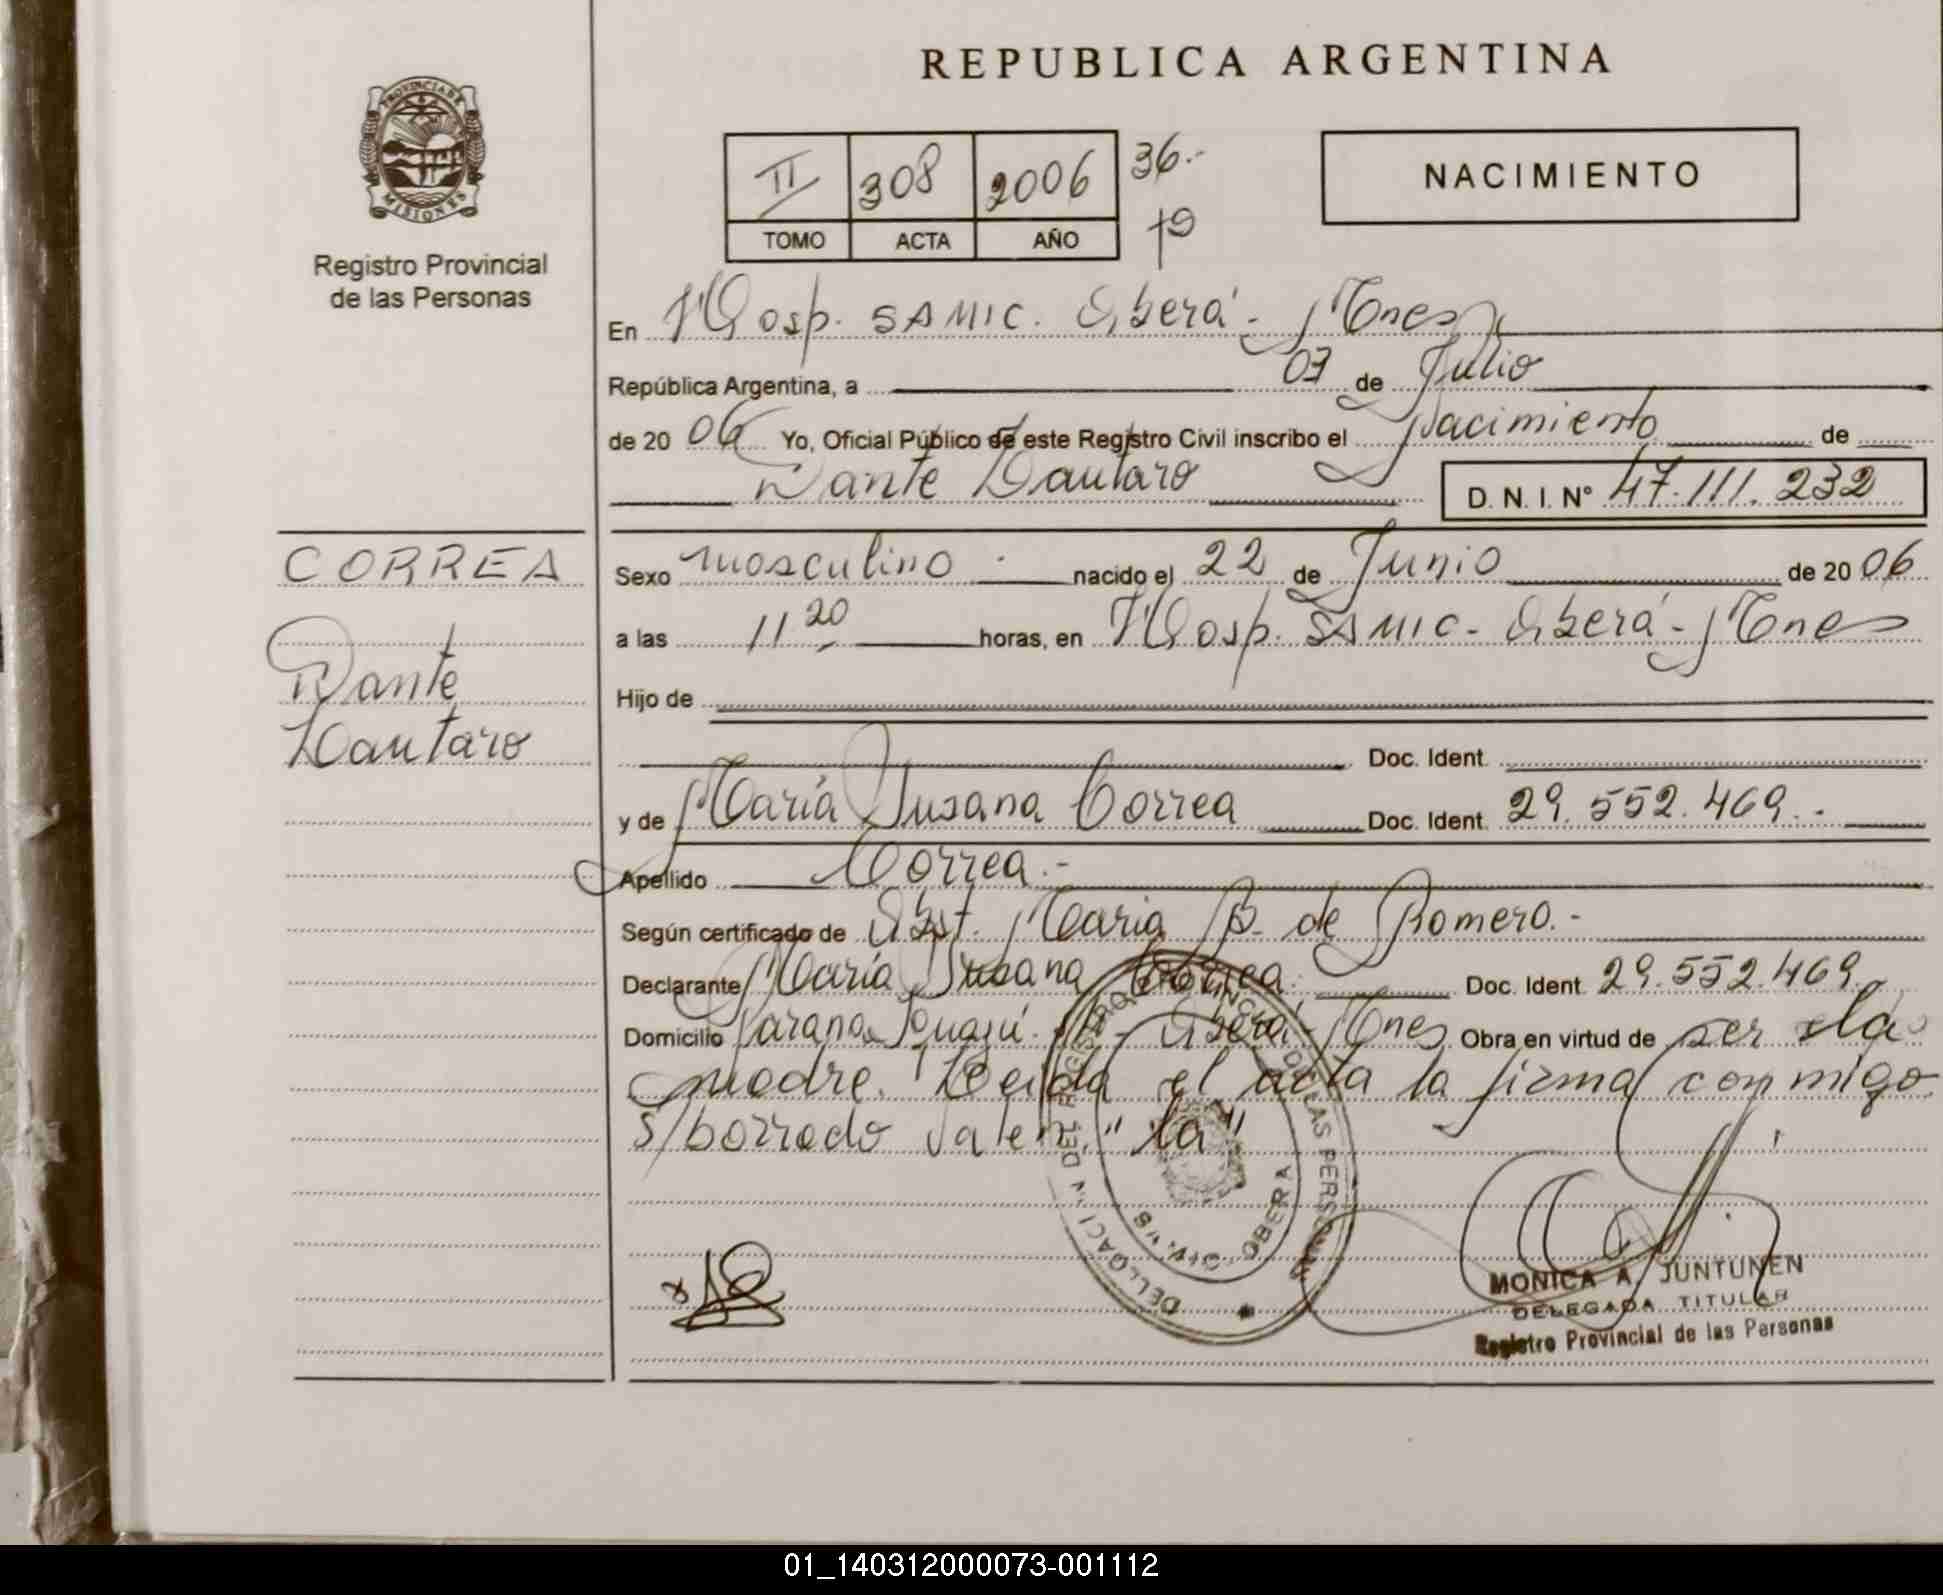 REPUBLICA ARGENTINA
PROVINCIA DE
MISIONES
Registro Provincial
de las Personas
II 308 2006 36.-
TOMO ACTA AÑO 19
NACIMIENTO
En Hosp. SAMIC. Oberá - Mnes
República Argentina, a 03 de Julio
de 20 06 Yo, Oficial Público de este Registro Civil inscribo el Nacimiento de
Dante Lautaro D. N. I. Nº 47.111.232
CORREA
Dante
Lautaro
Sexo masculino nacido el 22 de Junio de 20 06
a las 11 20 horas, en Hosp. SAMIC - Oberá - Mnes
Hijo de
Doc. Ident.
y de María Susana Correa Doc. Ident. 29.552.469.-
Apellido Correa.-
Según certificado de Obst. Maria B. de Romero.-
Declarante María Susana Correa. Doc. Ident. 29.552.469.
Domicilio Oberá - Mnes Obra en virtud de ser la
madre. Leida el acta la firma conmigo
S/borrado Valen "la"
OBERA
MONICA A. JUNTUNEN
DELEGADA TITULAR
Registro Provincial de las Personas
01_140312000073-001112